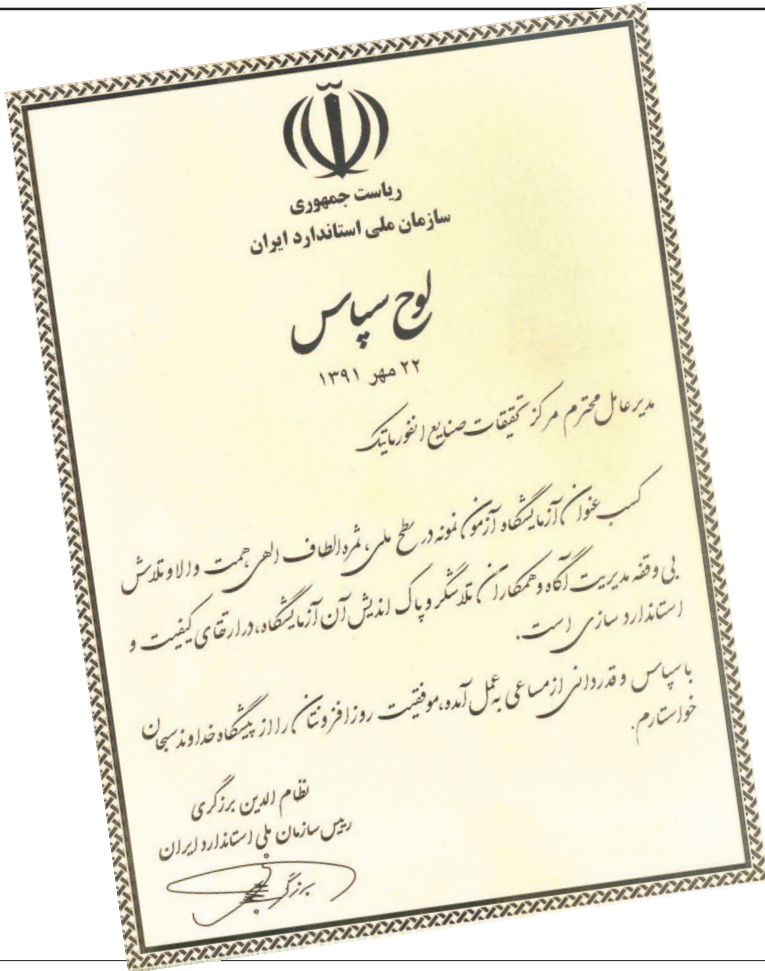 ریاست جمهوری
سازمان ملی استاندارد ایران
لوح سپاس
۲۲ مهر ۱۳۹۱
مدیر عامل محترم مرکز تحقیقات صنایع انفورماتیک
کسب عنوان آزمایشگاه آزمون نمونه در سطح ملی، ثمره الطاف الهی همت والا و تلاش
بی وقفه مدیریت آگاه و همکاران تلاشگر و پاک اندیش آن آزمایشگاه، در ارتقای کیفیت و
استاندارد سازی است.
با سپاس و قدردانی از مساعی به عمل آمده، موفقیت روز افزونتان را از پیشگاه خداوند سبحان
خواستارم.
نظام الدین برزگری
رییس سازمان ملی استاندارد ایران